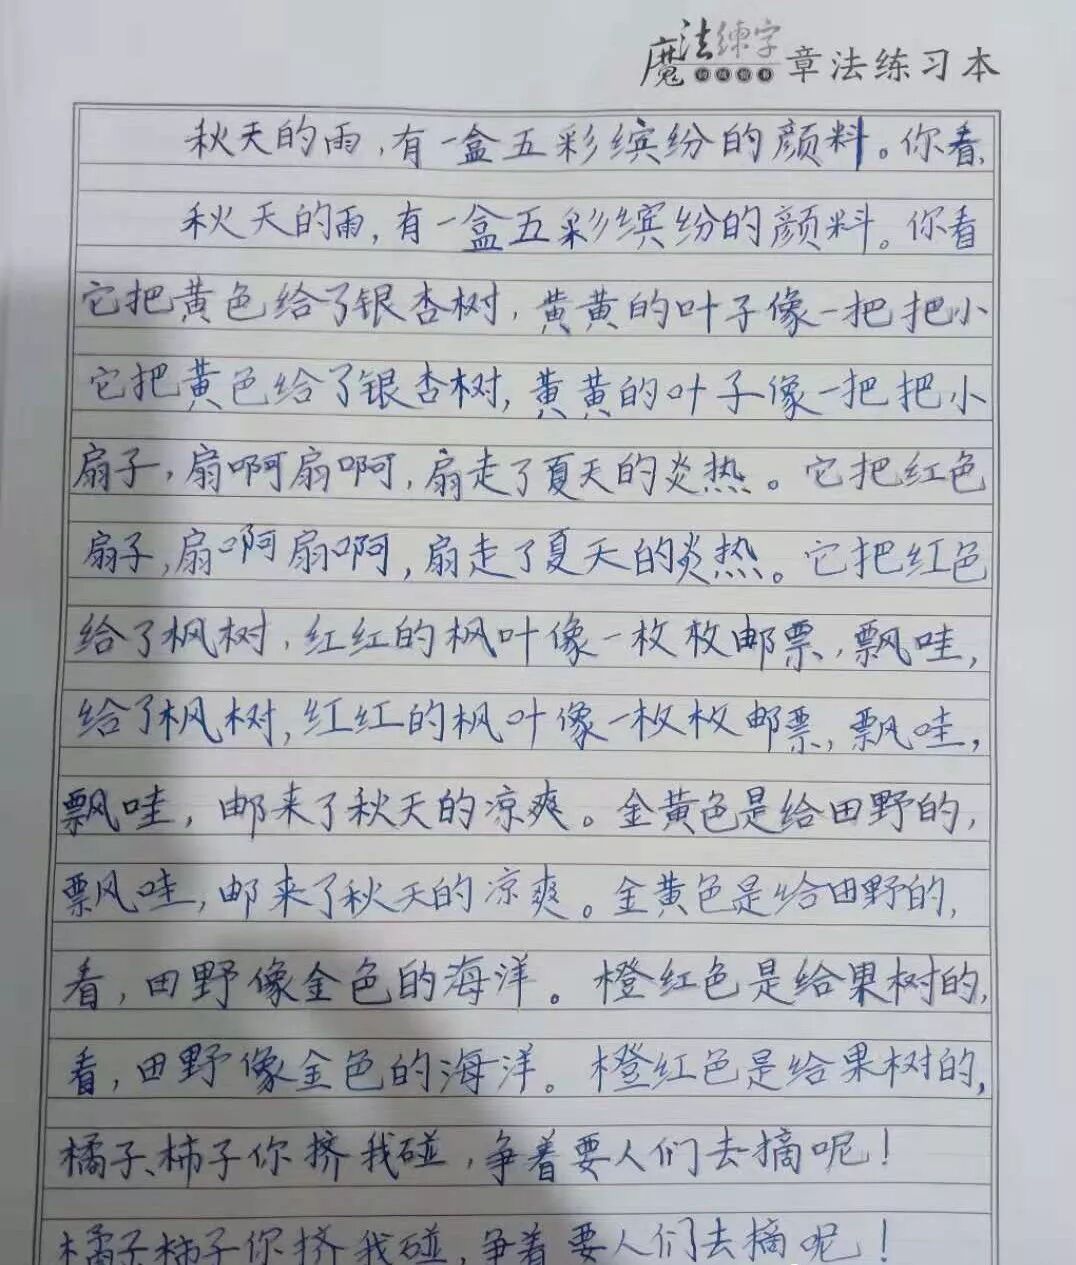 魔法练字 章法练习本
秋天的雨,有一盒五彩缤纷的颜料。你看,
秋天的雨,有一盒五彩缤纷的颜料。你看
它把黄色给了银杏树,黄黄的叶子像一把把小
它把黄色给了银杏树,黄黄的叶子像一把把小
扇子,扇啊扇啊,扇走了夏天的炎热。它把红色
扇子,扇啊扇啊,扇走了夏天的炎热。它把红色
给了枫树,红红的枫叶像一枚枚邮票,飘哇,
给了枫树,红红的枫叶像一枚枚邮票,飘哇,
飘哇,邮来了秋天的凉爽。金黄色是给田野的,
飘哇,邮来了秋天的凉爽。金黄色是给田野的,
看,田野像金色的海洋。橙红色是给果树的,
看,田野像金色的海洋。橙红色是给果树的,
橘子、柿子你挤我碰,争着要人们去摘呢!
橘子、柿子你挤我碰,争着要人们去摘呢!